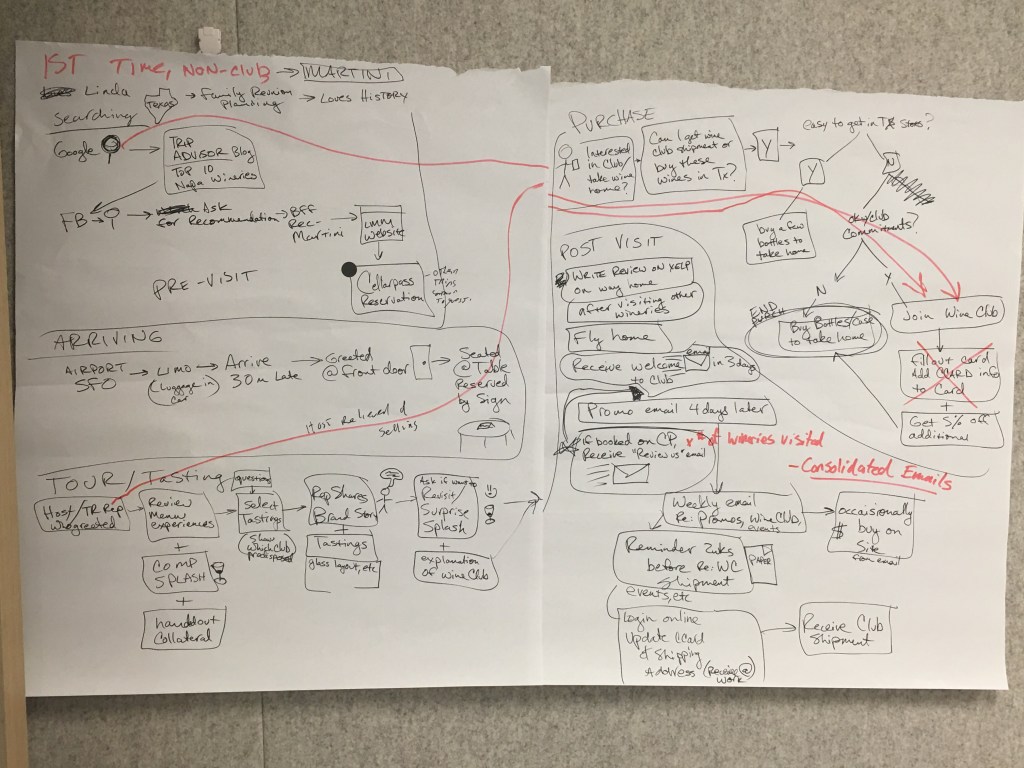 1ST TIME, NON-CLUB → MARTINI
Linda
Texas → Family Reunion Planning → Loves HISTORY
Searching
Google
TRIP
ADVISOR Blog
TOP 10
Napa Wineries
FB
Ask
for Recommendation
BFF
Rec-
Martini
LMM
website
Cellarpass
Reservation
PRE-VISIT
ARRIVING
AIRPORT
SFO
LIMO
(Luggage in
car)
Arrive
30m Late
Greeted
@ front door
Seated
@ Table
Reserved
by Sign
Host Relieved of
selling
TOUR/Tasting
Host/TR Rep
who greeted
Review
Menu
experiences
+
COMP
SPLASH
+
handout
Collateral
questions
Select
Tastings
Show
which Club
predisposed
Rep Shares
Brand Story
+
Tastings
glass layout, etc
Ask if want to
Revisit/
Surprise
Splash
+
explanation
of Wine Club
PURCHASE
Interested
in Club/
take wine
home?
Can I get wine
club shipment or
buy these
wines in Tx?
Y
easy to get in TX stores?
Y
N
buy a few
bottles to
take home
okay/club
Commitments?
N
Y
Buy Bottles/Case
to take home
Join Wine Club
fill out card
Add CCARD info
to Card
+
Get 5% off
additional
POST VISIT
WRITE REVIEW ON YELP
on way home
after visiting other
wineries
Fly home
Receive welcome email in 3 days
to Club
Promo email 4 days later
if booked on CP,
Receive "Review us" email
x # of wineries visited
- Consolidated Emails
Weekly email
Re: Promos, Wine Club,
events
occaisionally
$ buy on
Site
from email
Reminder 2wks
before Re: WC
Shipment
PAPER
events, etc
Login online
Update CCard
& Shipping
Address (Receiving @
Work)
Receive Club
Shipment